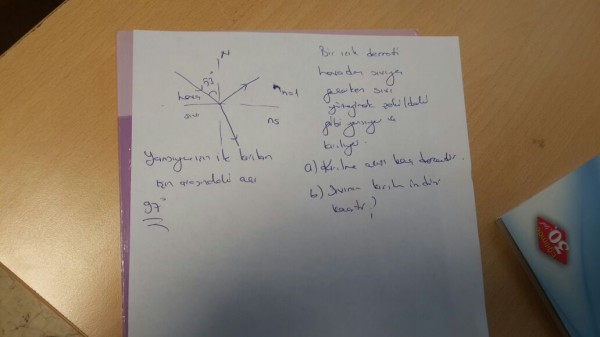 N
53°
hava
sıvı
n hava
ns
Yansıyan ışın ile kırılan
ışın arasındaki açı
97°
Bir ışık demeti
havadan sıvıya
geçerken sıvı
yüzeyinde şekildeki
gibi yansıyor ve
kırılıyor.
a) Kırılma açısı kaç derecedir.
b) Sıvının kırılma indisi
kaçtır?
30